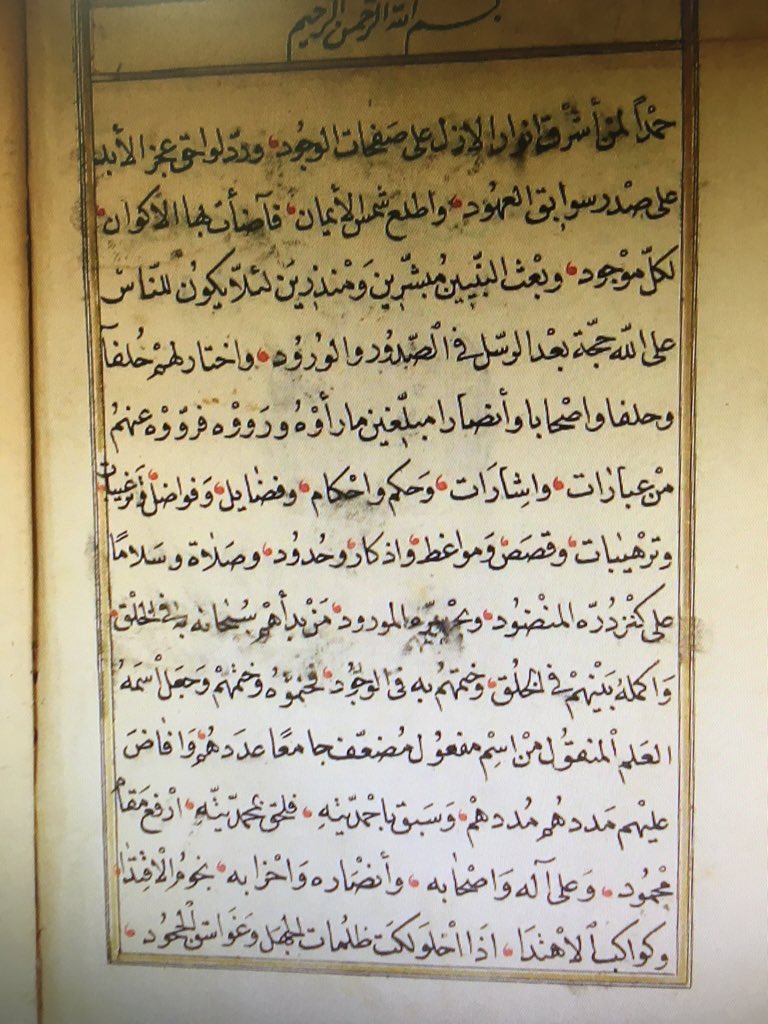 بسم الله الرحمن الرحيم
حمْداً لمن أشرق انوار الازل على صَفحات الوجُود، وردّ لواحق عجز الأبد
على صدْر سوابق العهُود، واطلع شمس الأيمان، فآضأت بها الاكوان،
لكلّ موْجود، وبعْث النبّيين مُبشّرين وَمْنذرين لئلّا يكونُ للنّاس
على الله حجّة بعْد الرسّل في الصّدُوُر والورُوُد، واختار لهمْ خُلفآ
وحلفا واصْحابا وأنصارا مبلّغين مارأوْهُ ورَووْه فروّوْه عنهمُ
منْ عبارات، واشِارَات، وَحكم واحْكام، وفضايل، وَفواضل، وَترغيبات،
وترْهيبات، وقصَص، وَمواعظ، واذكار، وحُدُود، وصَلاة وسَلامًا
على كنْز دُرّه المنْضُود، وبحْر المورود، مَنْ بدأهمْ سُبْحانه به في الخلْق،
وَاكملهُ بَيْنهمْ في الخلُق، وختمَهُم به في الوجُود، فختمُوُه وختمهْم وَجعَل اسْمَهُ
العَلم المنقوُل منْ اسِْم مفعوُل مُضعّف جامعًا عدَدهُمْ، وَافاضَ
عليْهم مَددهُم مُددهمْ، وَسَبق باحْمديّتهِ، فلحق بمحمديّتهِ، ارْفع مَقام
محْمُود، وَعلى آله وَاصْحابه، وأنصْاره وَاحْزابه، نجومُ الاقتدا،
وكواكب الاهْتدَا، اذَا احْلَوْلَكتَ ظلُمات الجهْل وَغَواسق الجحُود،